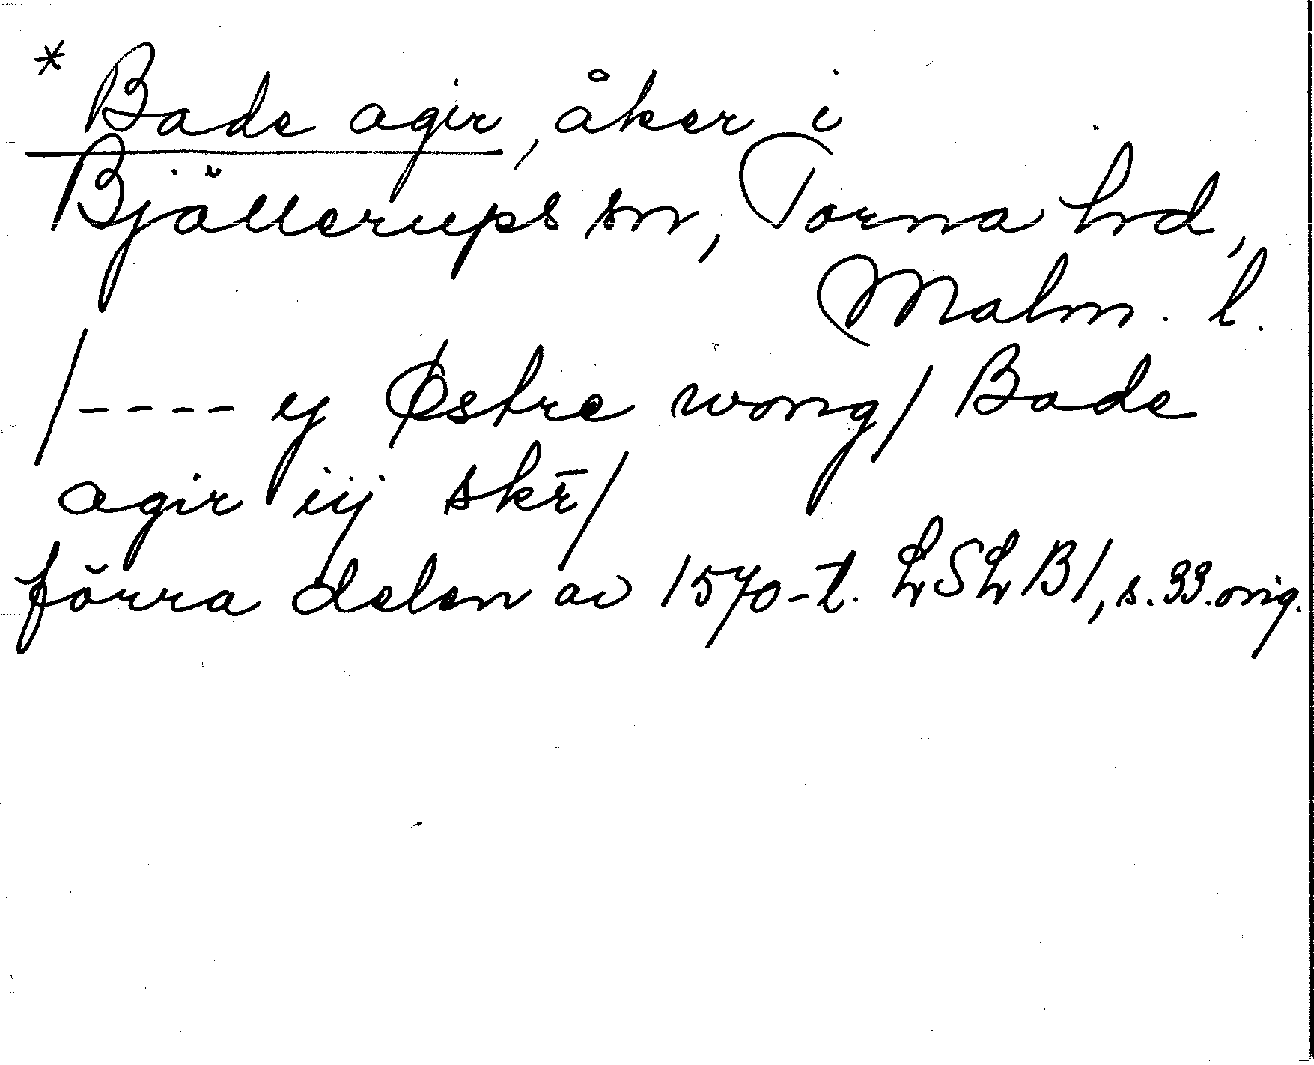 * Bade agir, åker i
Bjällerups sn, Torna hrd,
Malm. l.
/---- y Østre wong/ Bade
agir iij skr̄/
förra delen av 1570-t. LSLB1, s. 33. orig.